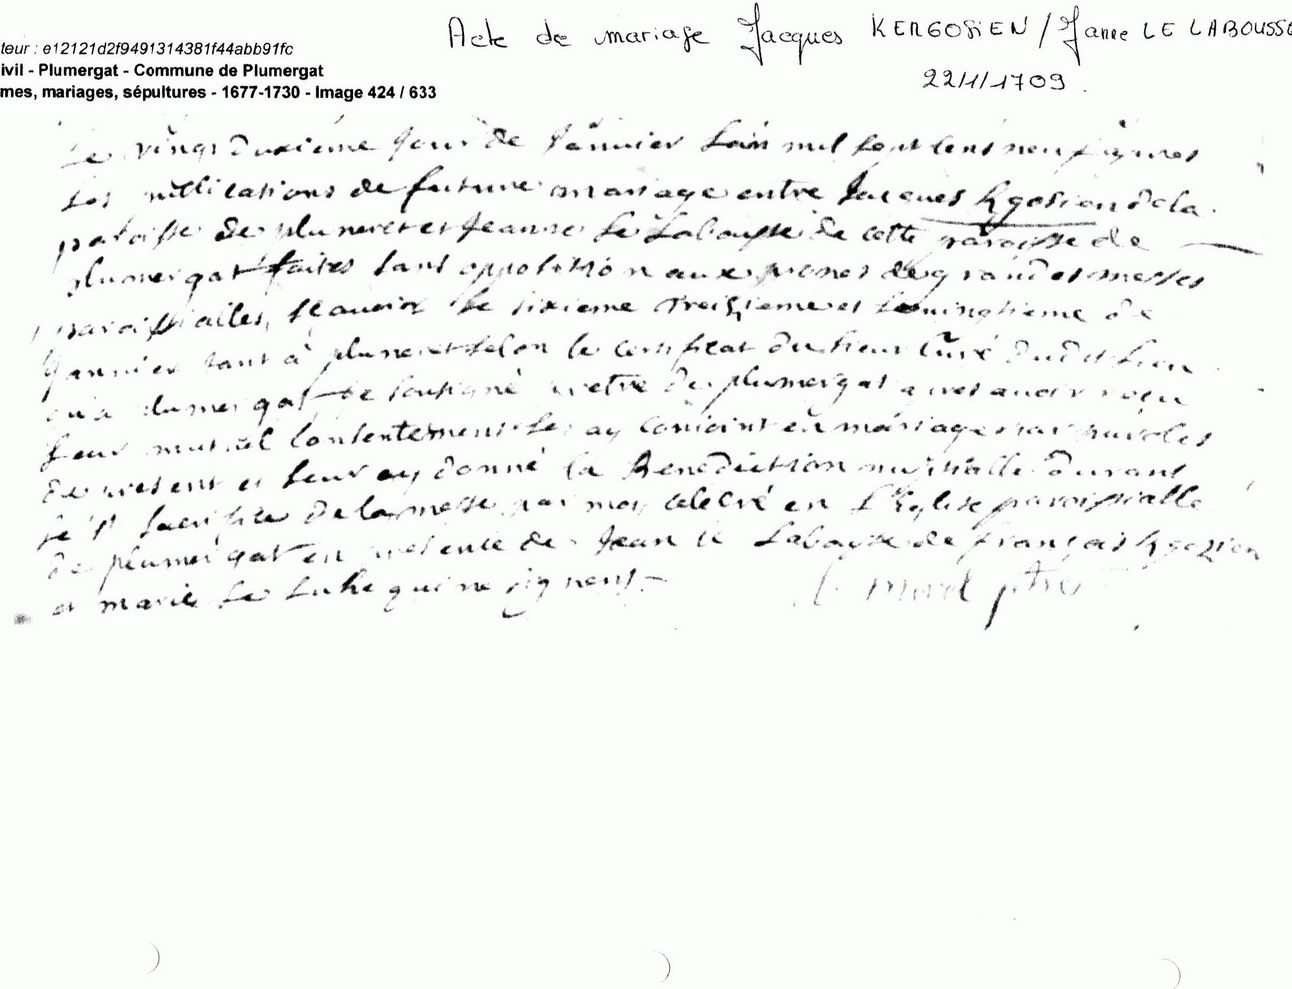 Acte de mariage Jacques KERGOSIEN / Janne LE LABOUSSE
teur : e12121d2f9491314381f44abb91fc
22/1/1709
ivil - Plumergat - Commune de Plumergat
mes, mariages, sépultures - 1677-1730 - Image 424 / 633
Le vingt duxiéme Jour de Januier L'ain mil sept cens neuf apres
les publications de future mariage entre Jacques Kgosien de la
paroisse de pluneret et Jeanne Le Labousse de cette paroisse de
plumergat faites sans opposition aux prones de grandes messes
paroissialles, scauoir le sixieme treizieme et le vingtieme de
Januier tant à pluneret selon le certificat du sieur Curé dudit Lieu
qu'a plumergat Je soussigné pretre de plumergat apres auoir reçu
Leur mutuel Consentement les ay conioint en mariage par paroles
de present et leur ay donné la Benediction nuptialle durant
le St Sacrifice de la messe par moy celebré en L'Eglise paroissialle
de plumergat en presence de Jean le Labousse de françois Kgozien
et marie Le Luhe qui ne signent.
morel ptre